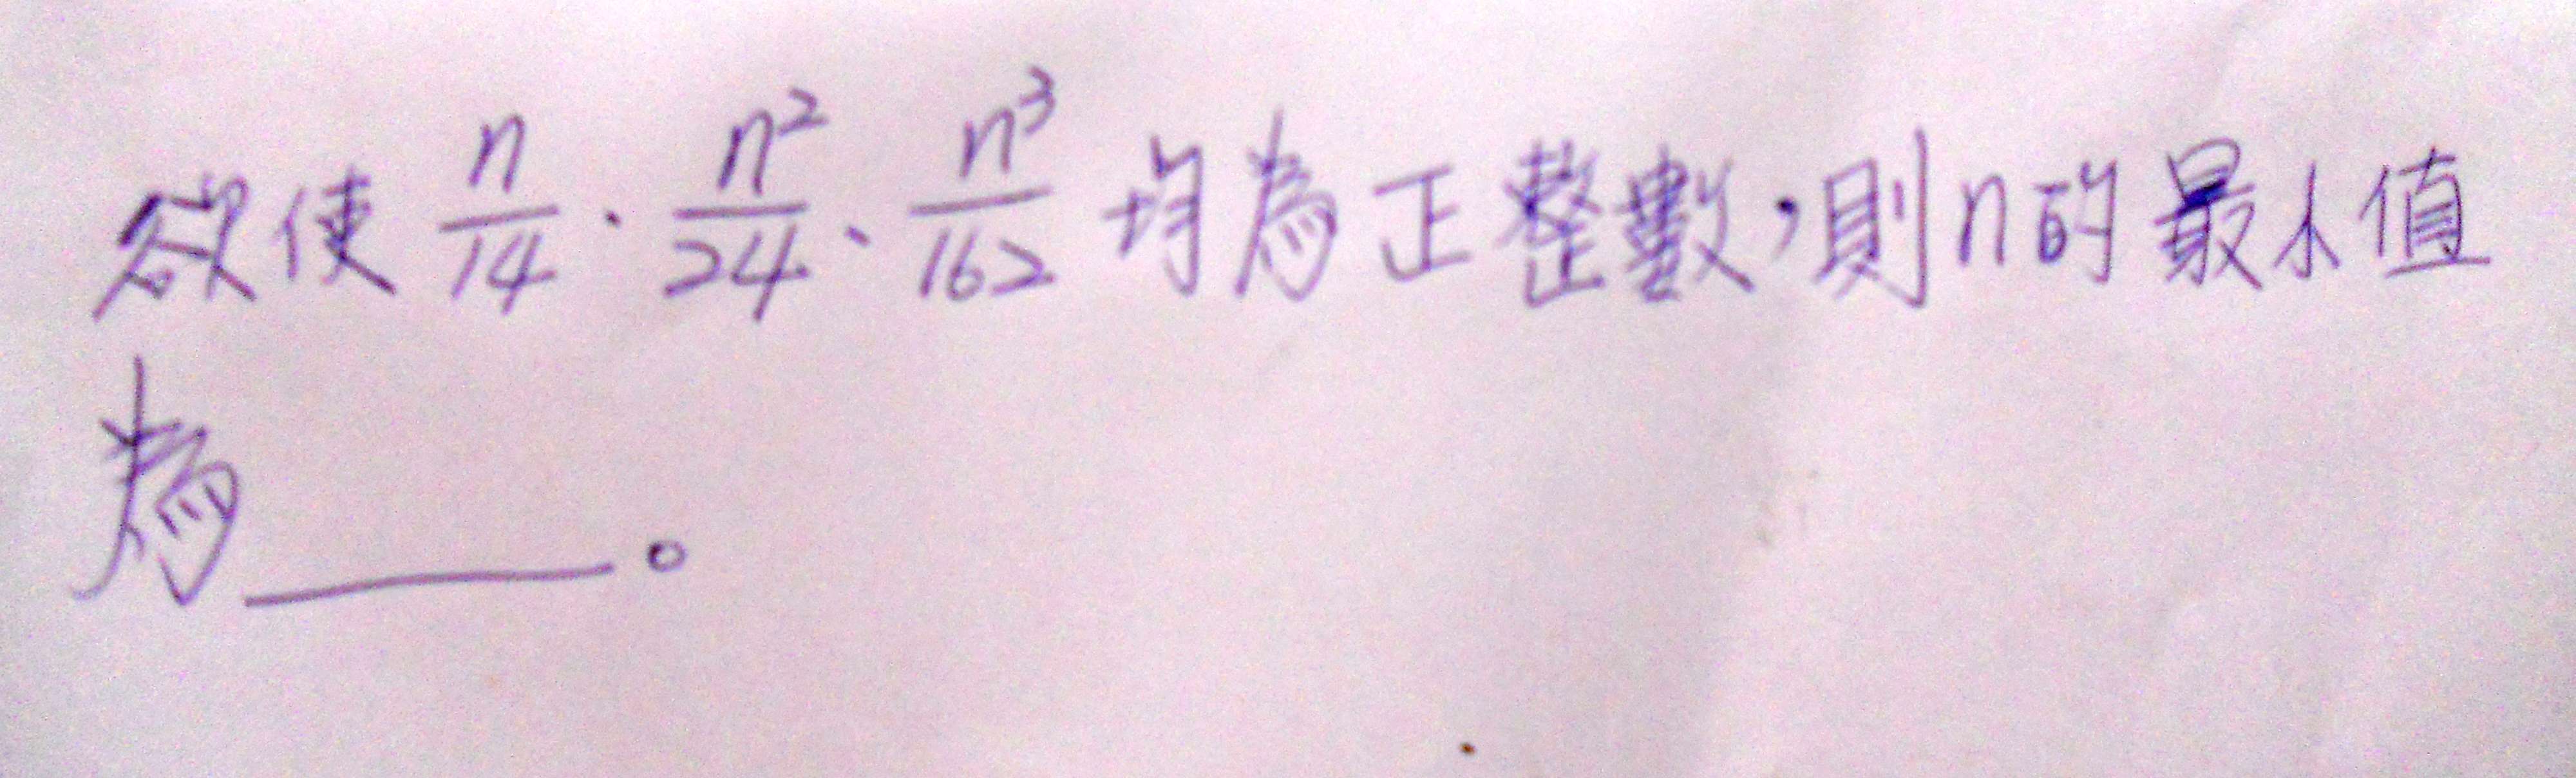 欲使 n/14、n²/24、n³/162 均為正整數，則n的最小值
為______。